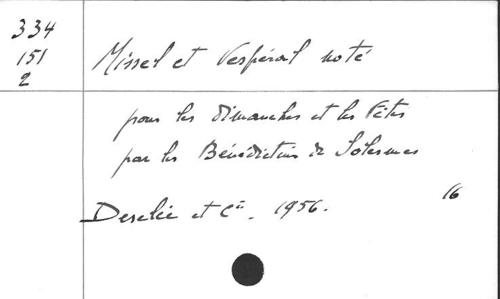 334
151
2
Missel et Vespéral noté
pour les dimanches et les Fêtes
par les Bénédictins de Solesmes
Desclée et Cie. 1956.
16